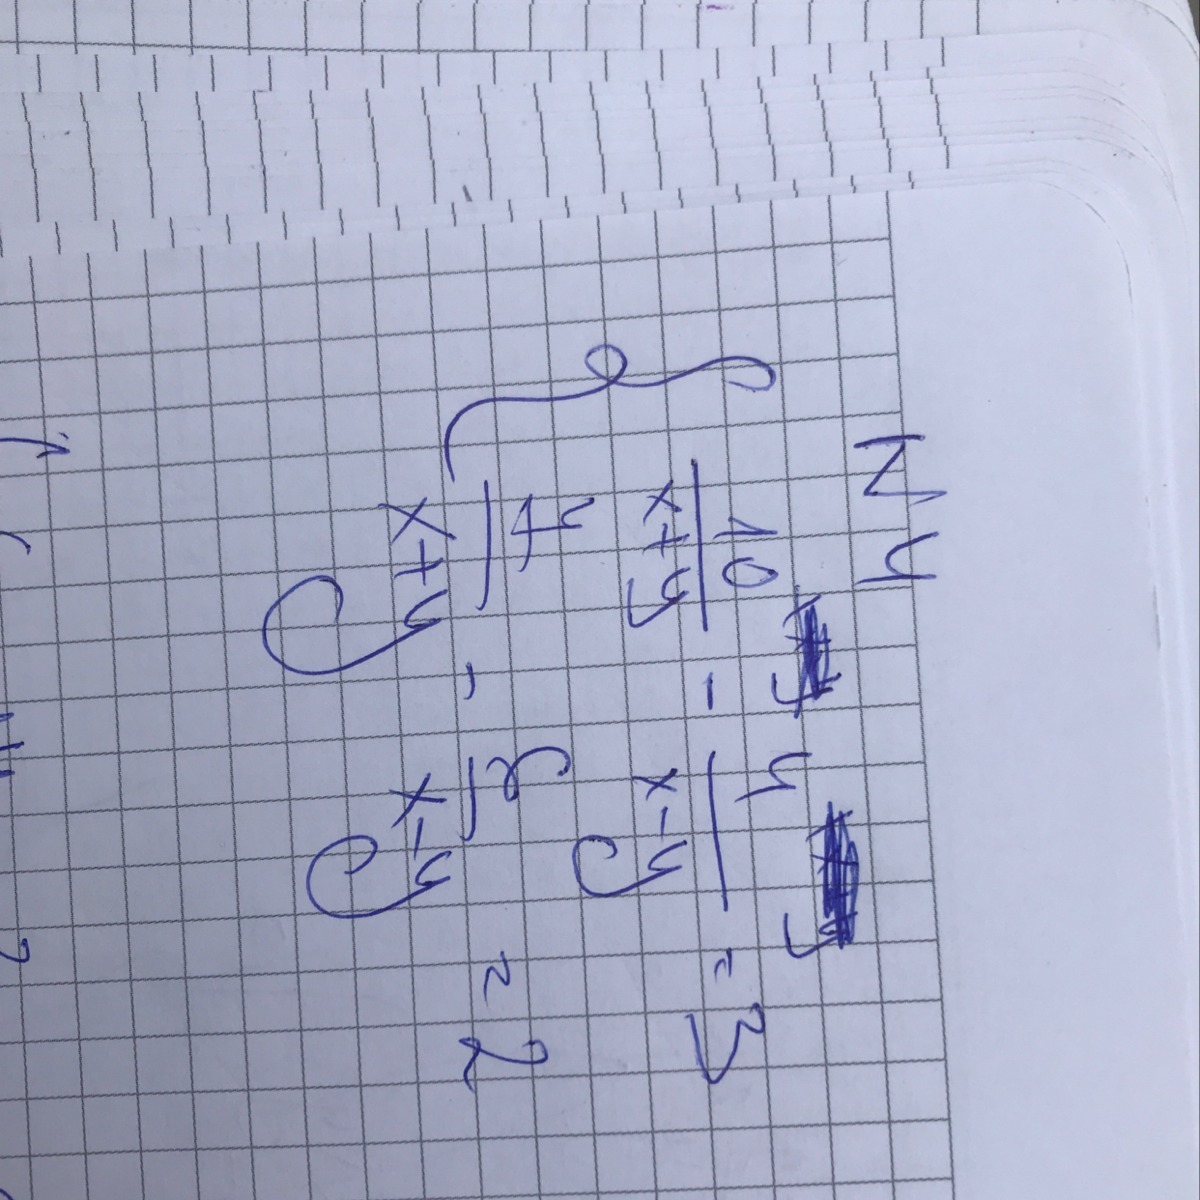 N 4
10/(x+y) - 4/(x-y) = 3
/(x+y) - /(x-y) = 2